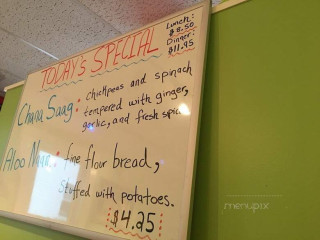 TODAY'S SPECIAL
Lunch:
$8.50
Dinner:
$11.95
Chana Saag: chickpeas and spinach
tempered with ginger,
garlic, and fresh spice
Aloo Naan: fine flour bread,
stuffed with potatoes.
$4.25
menupix